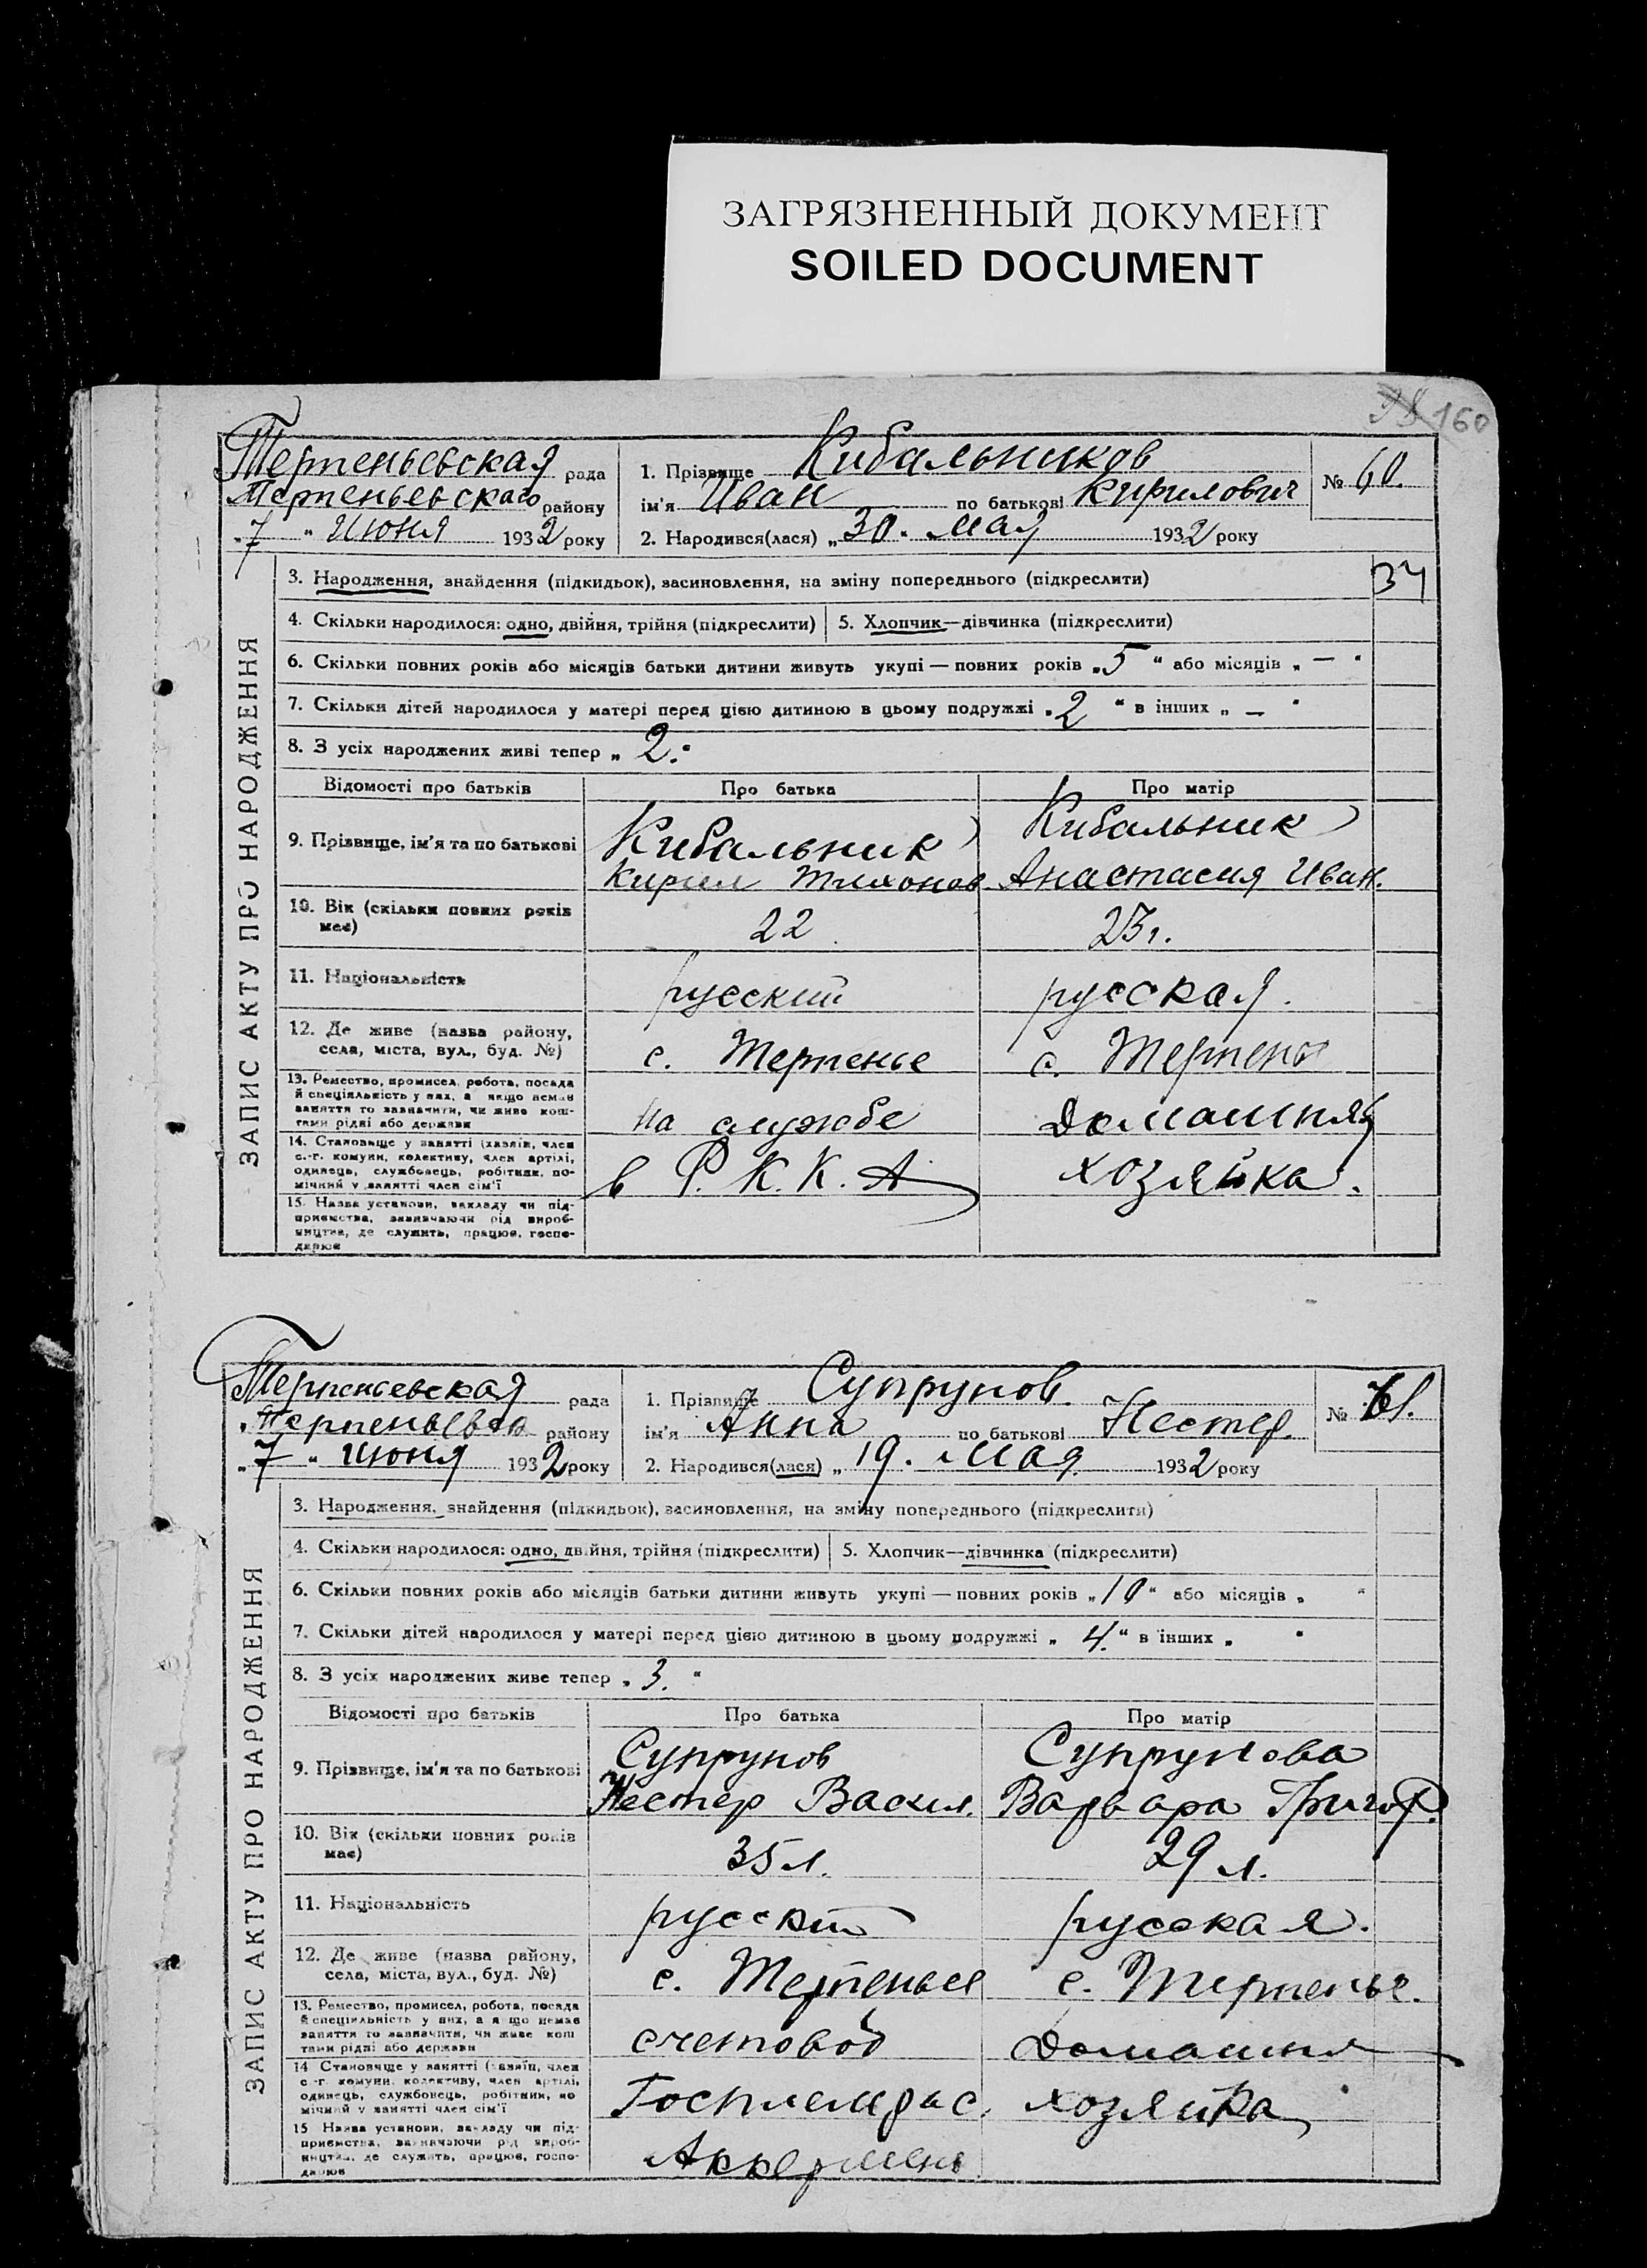 ЗАГРЯЗНЕННЫЙ ДОКУМЕНТ
SOILED DOCUMENT
160
Терпеньевская рада
Терпеньевскаго району
„7 " Июня 1932 року
1. Прізвище Кибальников
ім'я Иван по батькові Кирилович
2. Народився(лася) „30. Мая 1932 року
№ 60.
ЗАПИС АКТУ ПРО НАРОДЖЕННЯ
3. Народження, знайдення (підкидьок), засиновлення, на зміну попереднього (підкреслити)
34
4. Скільки народилося: одно, двійня, трійня (підкреслити) 5. Хлопчик—дівчинка (підкреслити)
6. Скільки повних років або місяців батьки дитини живуть укупі — повних років „5 " або місяців „ — "
7. Скільки дітей народилося у матері перед цією дитиною в цьому подружжі „2 " в інших „ — "
8. З усіх народжених живі тепер „ 2."
Відомості про батьків Про батька Про матір
9. Прізвище, ім'я та по батькові
Кибальник Кибальник
Кирил Тихонов Анастасия Иван.
10. Вік (скільки повних років має)
22 23г.
11. Національність
русский русская.
12. Де живе (назва району, села, міста, вул., буд. №)
с. Терпенье с. Терпенье
13. Ремество, промисел, робота, посада
й спеціяльність у них, а якщо немає
заняття то зазначити, чи живе кош-
тами рідні або держави
на службе Домашняя
14. Становище у занятті (хазяїн, член
с.-г. комуни, колективу, член артілі,
одинець, службовець, робітник, по-
мічний у занятті член сім'ї
в Р.К.К.А хозяйка.
15. Назва установи, закладу чи під-
приємства, зазначаючи рід вироб-
ництва, де служить, працює, госпо-
дарює
Терпеньевская рада
району
„7 " июня 1932 року
1. Прізвище Супрунов.
ім'я Анна по батькові Нестер.
2. Народився(лася) „19. Мая 1932 року
№ 61.
ЗАПИС АКТУ ПРО НАРОДЖЕННЯ
3. Народження, знайдення (підкидьок), засиновлення, на зміну попереднього (підкреслити)
4. Скільки народилося: одно, двійня, трійня (підкреслити) 5. Хлопчик—дівчинка (підкреслити)
6. Скільки повних років або місяців батьки дитини живуть укупі — повних років „10" або місяців „ "
7. Скільки дітей народилося у матері перед цією дитиною в цьому подружжі „ 4." в інших „ "
8. З усіх народжених живе тепер „ 3. "
Відомості про батьків Про батька Про матір
9. Прізвище, ім'я та по батькові
Супрунов Супрунова
Нестер Васил. Варвара Григор.
10. Вік (скільки повних років має)
35 л. 29 л.
11. Національність
русский русская.
12. Де живе (назва району, села, міста, вул., буд. №)
с. Терпенье с. Терпенье.
13. Ремество, промисел, робота, посада
й спеціяльність у них, а якщо немає
заняття то зазначити, чи живе кош
тами рідні або держави
счетовод Домашня
14 Становище у занятті (хазяїн, член
с.-г. комуни, колективу, член артілі,
одинець, службовець, робітник, по
мічний у занятті член сім'ї
Госплемрас. хозяйка
15 Назва установи, закладу чи під-
приємства, зазначаючи рід вироб-
ництва, де служить, працює, госпо-
дарює
Аккермень